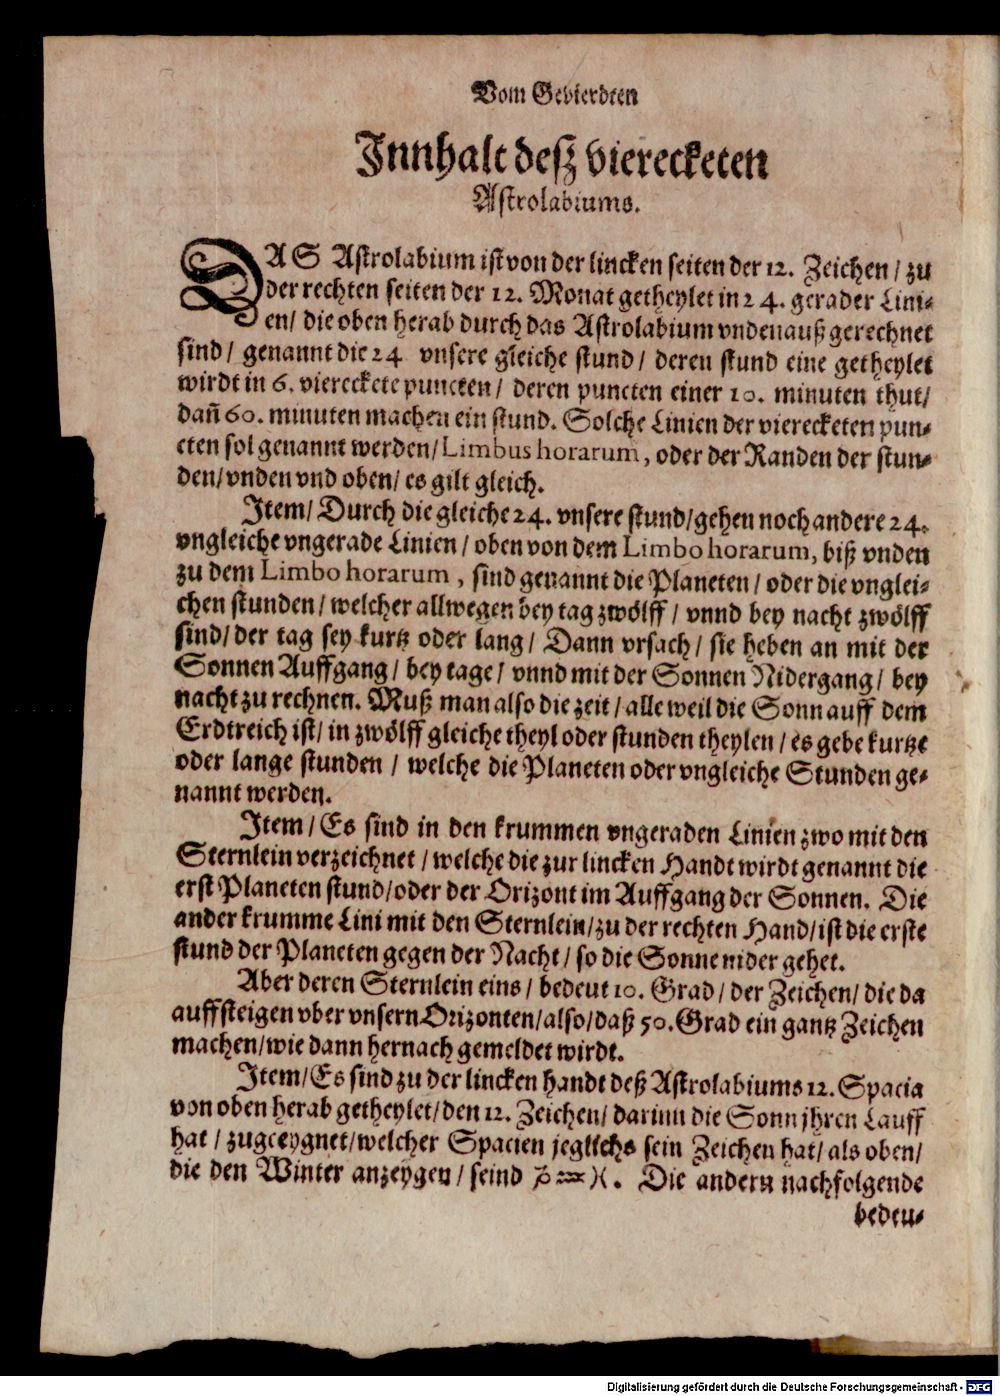 Vom Gevierdten
Innhalt desz vierecketen
Astrolabiums.
DAS Astrolabium ist von der lincken seiten der 12. Zeichen / zu
der rechten seiten der 12. Monat getheylet in 24. gerader Lini-
en / die oben herab durch das Astrolabium vnden auß gerechnet
sind / genannt die 24 vnsere gleiche stund / deren stund eine getheylet
wirdt in 6. viereckete puncten / deren puncten einer 10. minuten thut /
dañ 60. minuten machen ein stund. Solche Linien der vierecketen pun-
cten sol genannt werden / Limbus horarum, oder der Randen der stun-
den / vnden vnd oben / es gilt gleich.
Item / Durch die gleiche 24. vnsere stund / gehen noch andere 24.
vngleiche vngerade Linien / oben von dem Limbo horarum, biß vnden
zu dem Limbo horarum, sind genannt die Planeten / oder die vnglei-
chen stunden / welcher allwegen bey tag zwölff / vnnd bey nacht zwölff
sind / der tag sey kurtz oder lang / Dann vrsach / sie heben an mit der
Sonnen Auffgang / bey tage / vnnd mit der Sonnen Nidergang / bey
nacht zu rechnen. Muß man also die zeit / alle weil die Sonn auff dem
Erdtreich ist / in zwölff gleiche theyl oder stunden theylen / es gebe kurtze
oder lange stunden / welche die Planeten oder vngleiche Stunden ge-
nannt werden.
Item / Es sind in den krummen vngeraden Linien zwo mit den
Sternlein verzeichnet / welche die zur lincken Handt wirdt genannt die
erst Planeten stund / oder der Orizont im Auffgang der Sonnen. Die
ander krumme Lini mit den Sternlein / zu der rechten Hand / ist die erste
stund der Planeten gegen der Nacht / so die Sonne nider gehet.
Aber deren Sternlein eins / bedeut 10. Grad / der Zeichen / die da
auffsteigen vber vnsern Orizonten / also / daß 50. Grad ein gantz Zeichen
machen / wie dann hernach gemeldet wirdt.
Item / Es sind zu der lincken handt deß Astrolabiums 12. Spacia
von oben herab getheylet / den 12. Zeichen / darinn die Sonn jhren Lauff
hat / zugeeygnet / welcher Spacien jeglichs sein Zeichen hat / als oben /
die den Winter anzeygen / seind ♑ ♒ ♓. Die andern nachfolgende
bedeu-
Digitalisierung gefördert durch die Deutsche Forschungsgemeinschaft - DFG